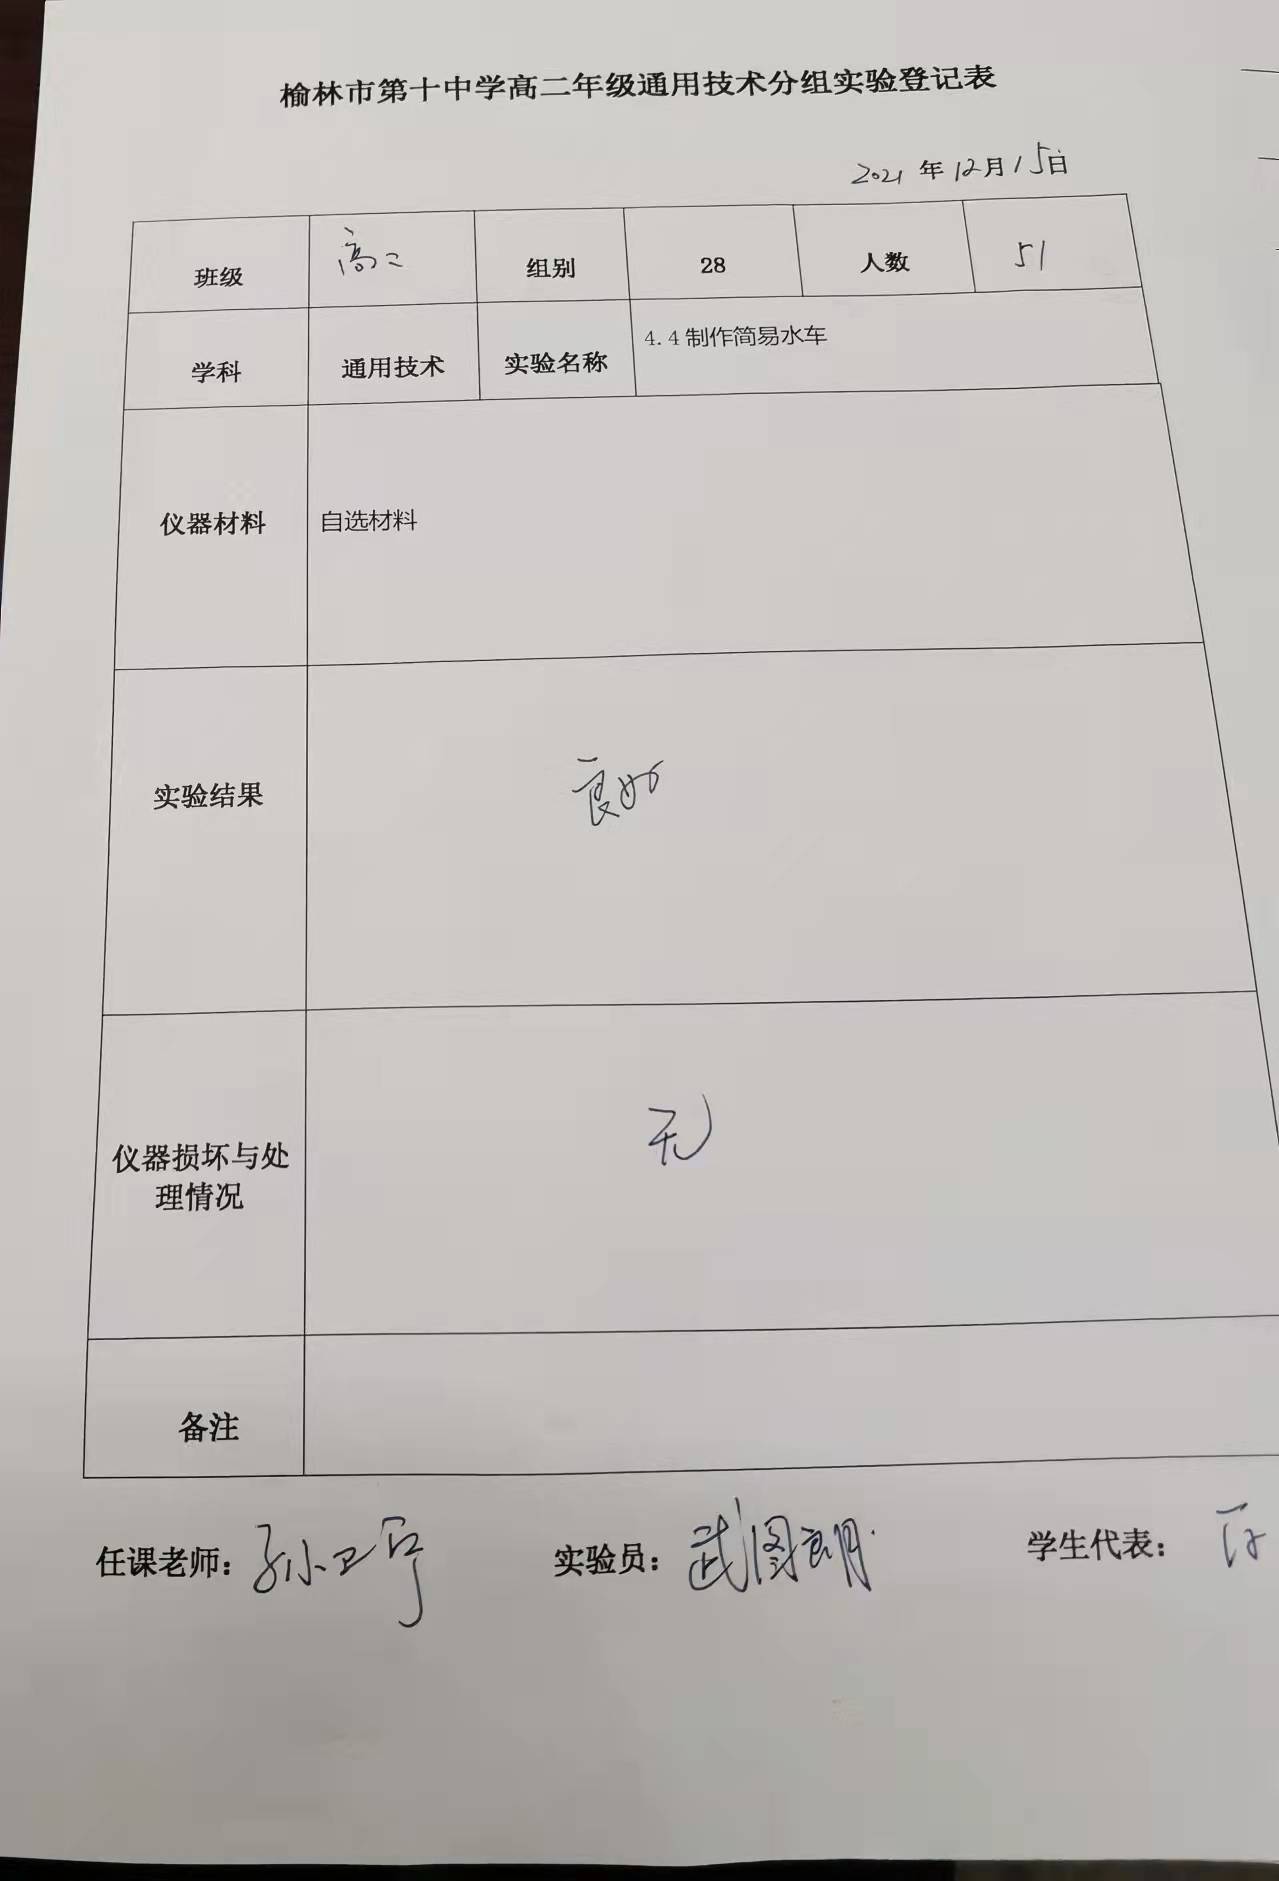 榆林市第十中学高二年级通用技术分组实验登记表
2021 年 12月 15日
班级 高二 组别 28 人数 51
学科 通用技术 实验名称 4.4 制作简易水车
仪器材料 自选材料
实验结果 良好
仪器损坏与处
理情况 无
备注
任课老师: 孙卫 实验员: 武图 明 学生代表: